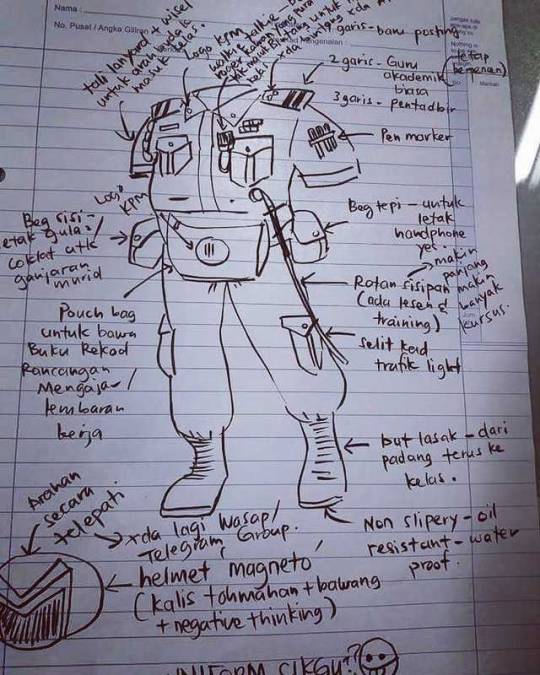 Nama :
No. Pusat / Angka Giliran
tali lanyard + wisel
untuk arah budak
masuk kelas.
Logo KPM
walkie talkie
garis - baru posting
2 garis - Guru
akademik
biasa
(tetap
bergerak)
3 garis - pentadbir
Pen marker
Logo
KPM
Beg sisi -
letak gula /
coklat utk
ganjaran
murid
Beg tepi - untuk
letak
handphone
yer.
Rotan sisipan
(ada lesen &
training)
makin
panjang
makin
banyak
kursus.
Pouch bag
untuk bawa
Buku Rekod
Rancangan
Mengajar /
lembaran
kerja
Selit kad
trafik light
but lasak - dari
padang terus ke
kelas.
Non slipery - oil
resistant - water
proof.
Arahan
secara
telepati
xda lagi Wasap /
Telegram Group.
helmet magneto
(kalis tohmahan + bawang
+ negative thinking)
UNIFORM CIKGU??